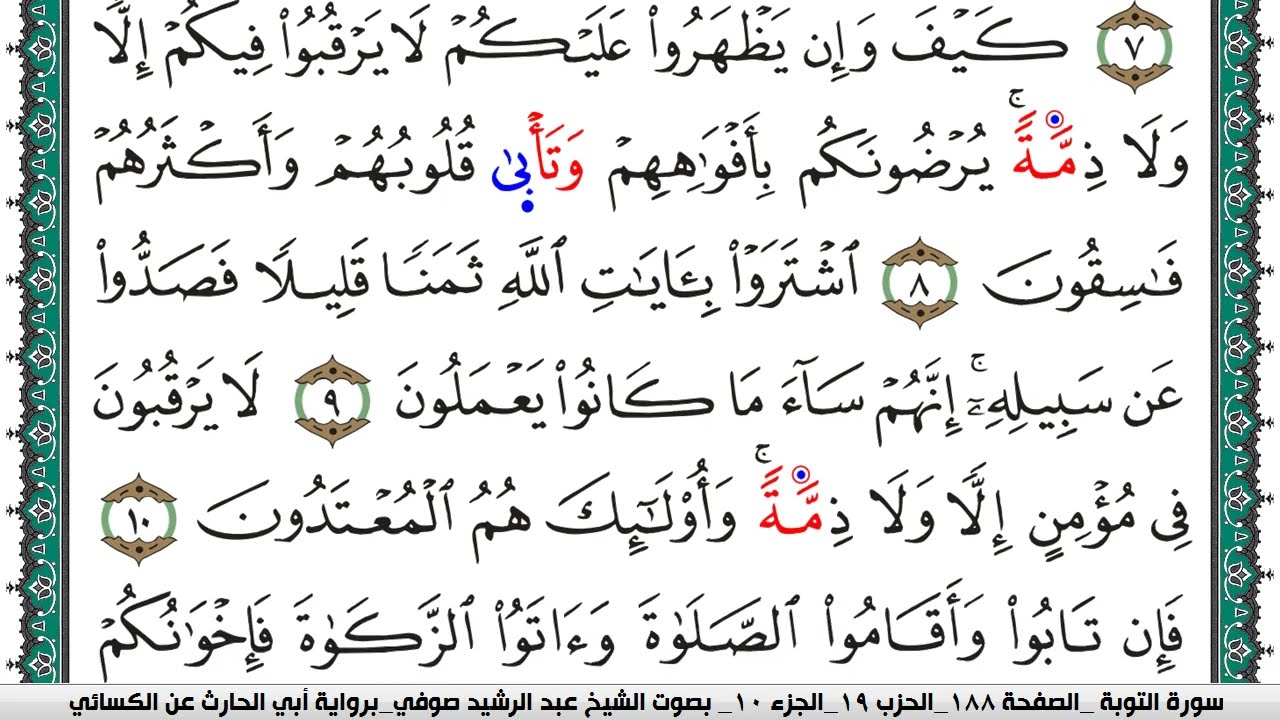 ٧ كَيۡفَ وَإِن يَظۡهَرُواْ عَلَيۡكُمۡ لَا يَرۡقُبُواْ فِيكُمۡ إِلّٗا
وَلَا ذِمَّةٗۚ يُرۡضُونَكُم بِأَفۡوَٰهِهِمۡ وَتَأۡبَىٰ قُلُوبُهُمۡ وَأَكۡثَرُهُمۡ
فَٰسِقُونَ ٨ ٱشۡتَرَوۡاْ بِـَٔايَٰتِ ٱللَّهِ ثَمَنٗا قَلِيلٗا فَصَدُّواْ
عَن سَبِيلِهِۦٓۚ إِنَّهُمۡ سَآءَ مَا كَانُواْ يَعۡمَلُونَ ٩ لَا يَرۡقُبُونَ
فِي مُؤۡمِنٍ إِلّٗا وَلَا ذِمَّةٗۚ وَأُوْلَٰٓئِكَ هُمُ ٱلۡمُعۡتَدُونَ ١٠
فَإِن تَابُواْ وَأَقَامُواْ ٱلصَّلَوٰةَ وَءَاتَوُاْ ٱلزَّكَوٰةَ فَإِخۡوَٰنُكُمۡ
سورة التوبة _الصفحة ١٨٨_الحزب ١٩_الجزء ١٠_ بصوت الشيخ عبد الرشيد صوفي_برواية أبي الحارث عن الكسائي